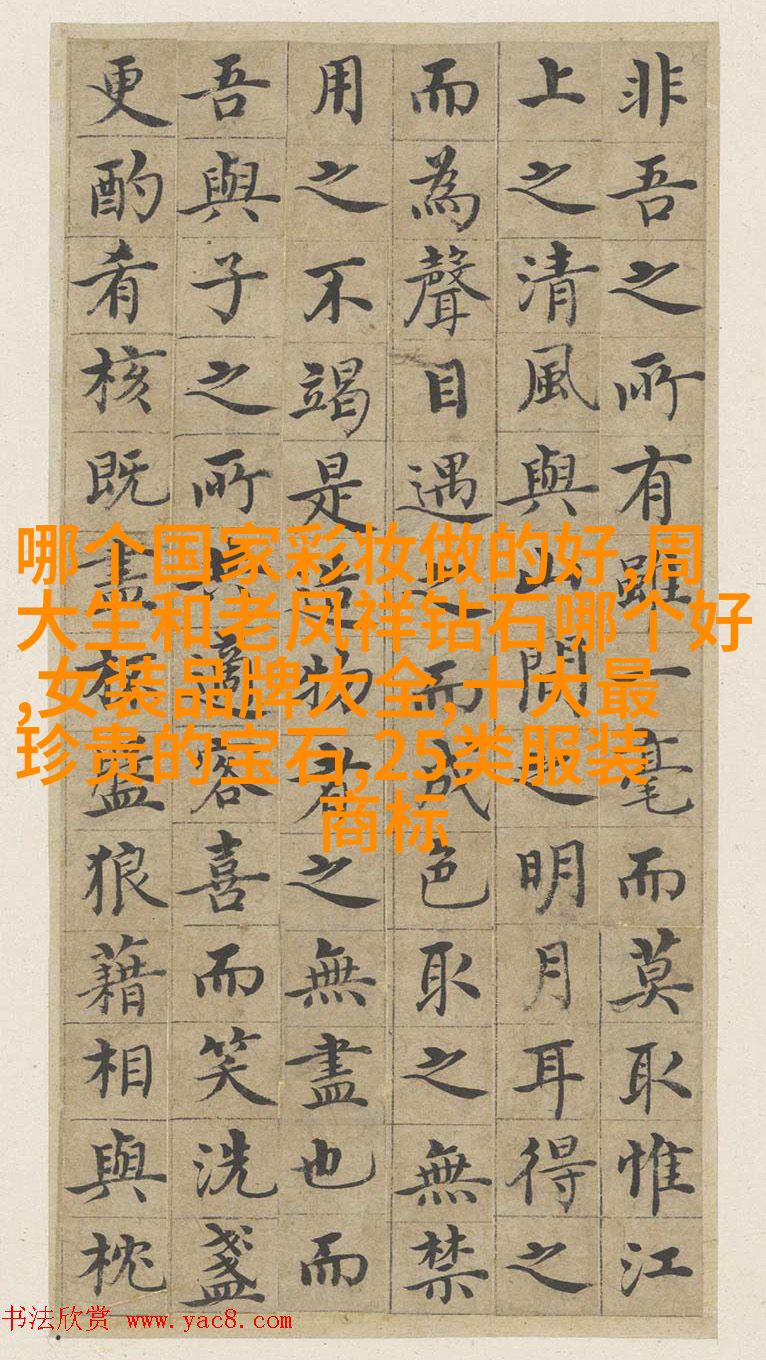 非吾之所有雖一毫而莫取惟江
上之清風與山間之明月耳得之
而為聲目遇之而成色取之無禁
用之不竭是造物者之無盡也而
吾與子之所共適客喜而笑洗盞
更酌肴核既盡杯盤狼藉相與枕
哪个国家彩妆做的好,周
大生和老凤祥钻石哪个好
,女装品牌大全,十大最
珍贵的宝石,25类服装
商标
书法欣赏 www.yac8.com